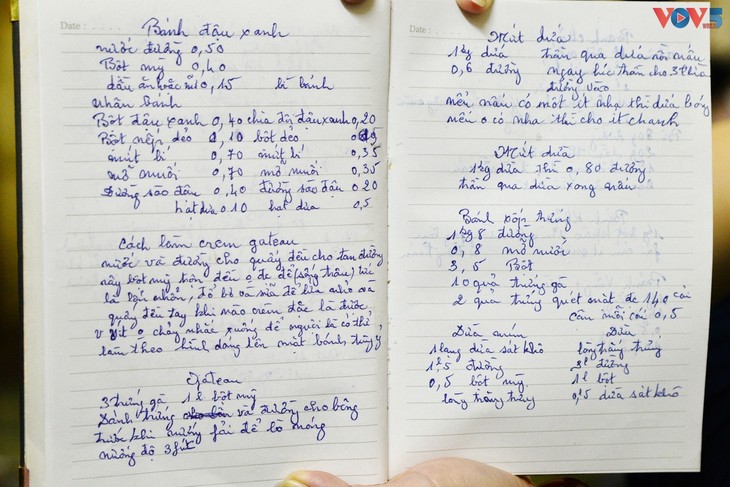 VOV5
Date :
Bánh đậu xanh
nước đường 0,50
Bột mỳ 0,40
dầu ăn hoặc mỡ 0,15 bì bánh
nhân bánh
Bột đậu xanh 0,40 chia đôi đậu xanh 0,20
Bột nếp dẻo 0,10 bột dẻo
mứt bí 0,70 mứt bí 0,35
mỡ muối 0,70 mỡ muối 0,35
Đường sào đậu 0,40 đường sào đậu 0.20
hạt dưa 0.10 hạt dưa 0,5
Cách làm crem gateau
nước và đường cho quấy đều cho tan đường
này bột mỳ trộn đều
quấy đều tay khi nào crem đặc là được
chảy nhấc xuống để nguội là có thể
làm theo hình dáng lên mặt bánh tùy ý
Gateau
3 trứng gà 1 l bột mỳ
Đánh trứng và đường cho bông
trước khi nướng fải để lò nóng
nướng độ
Date :
Mứt dứa
1 kg dứa trần qua dứa rồi nấu
0,6 đường ngay lúc trần cho
đường vào
nếu nấu có một ít nha thì dứa bóng
nếu o có nha thì cho ít chanh
Mứt dừa
1 kg dừa thì 0,80 đường
trần qua dừa xong nấu
Bánh xốp trứng
1 kg 8 đường
0,8 mỡ nước
3,5 Bột
10 quả trứng gà
2 quả trứng quét mặt
cân mỗi cái 0,5
Dừa
1 lạng dừa sát khô lòng trắng trứng
đường 3l đường
0,5 bột mỳ 1l bột
lòng trắng trứng 0,5 dừa sát khô